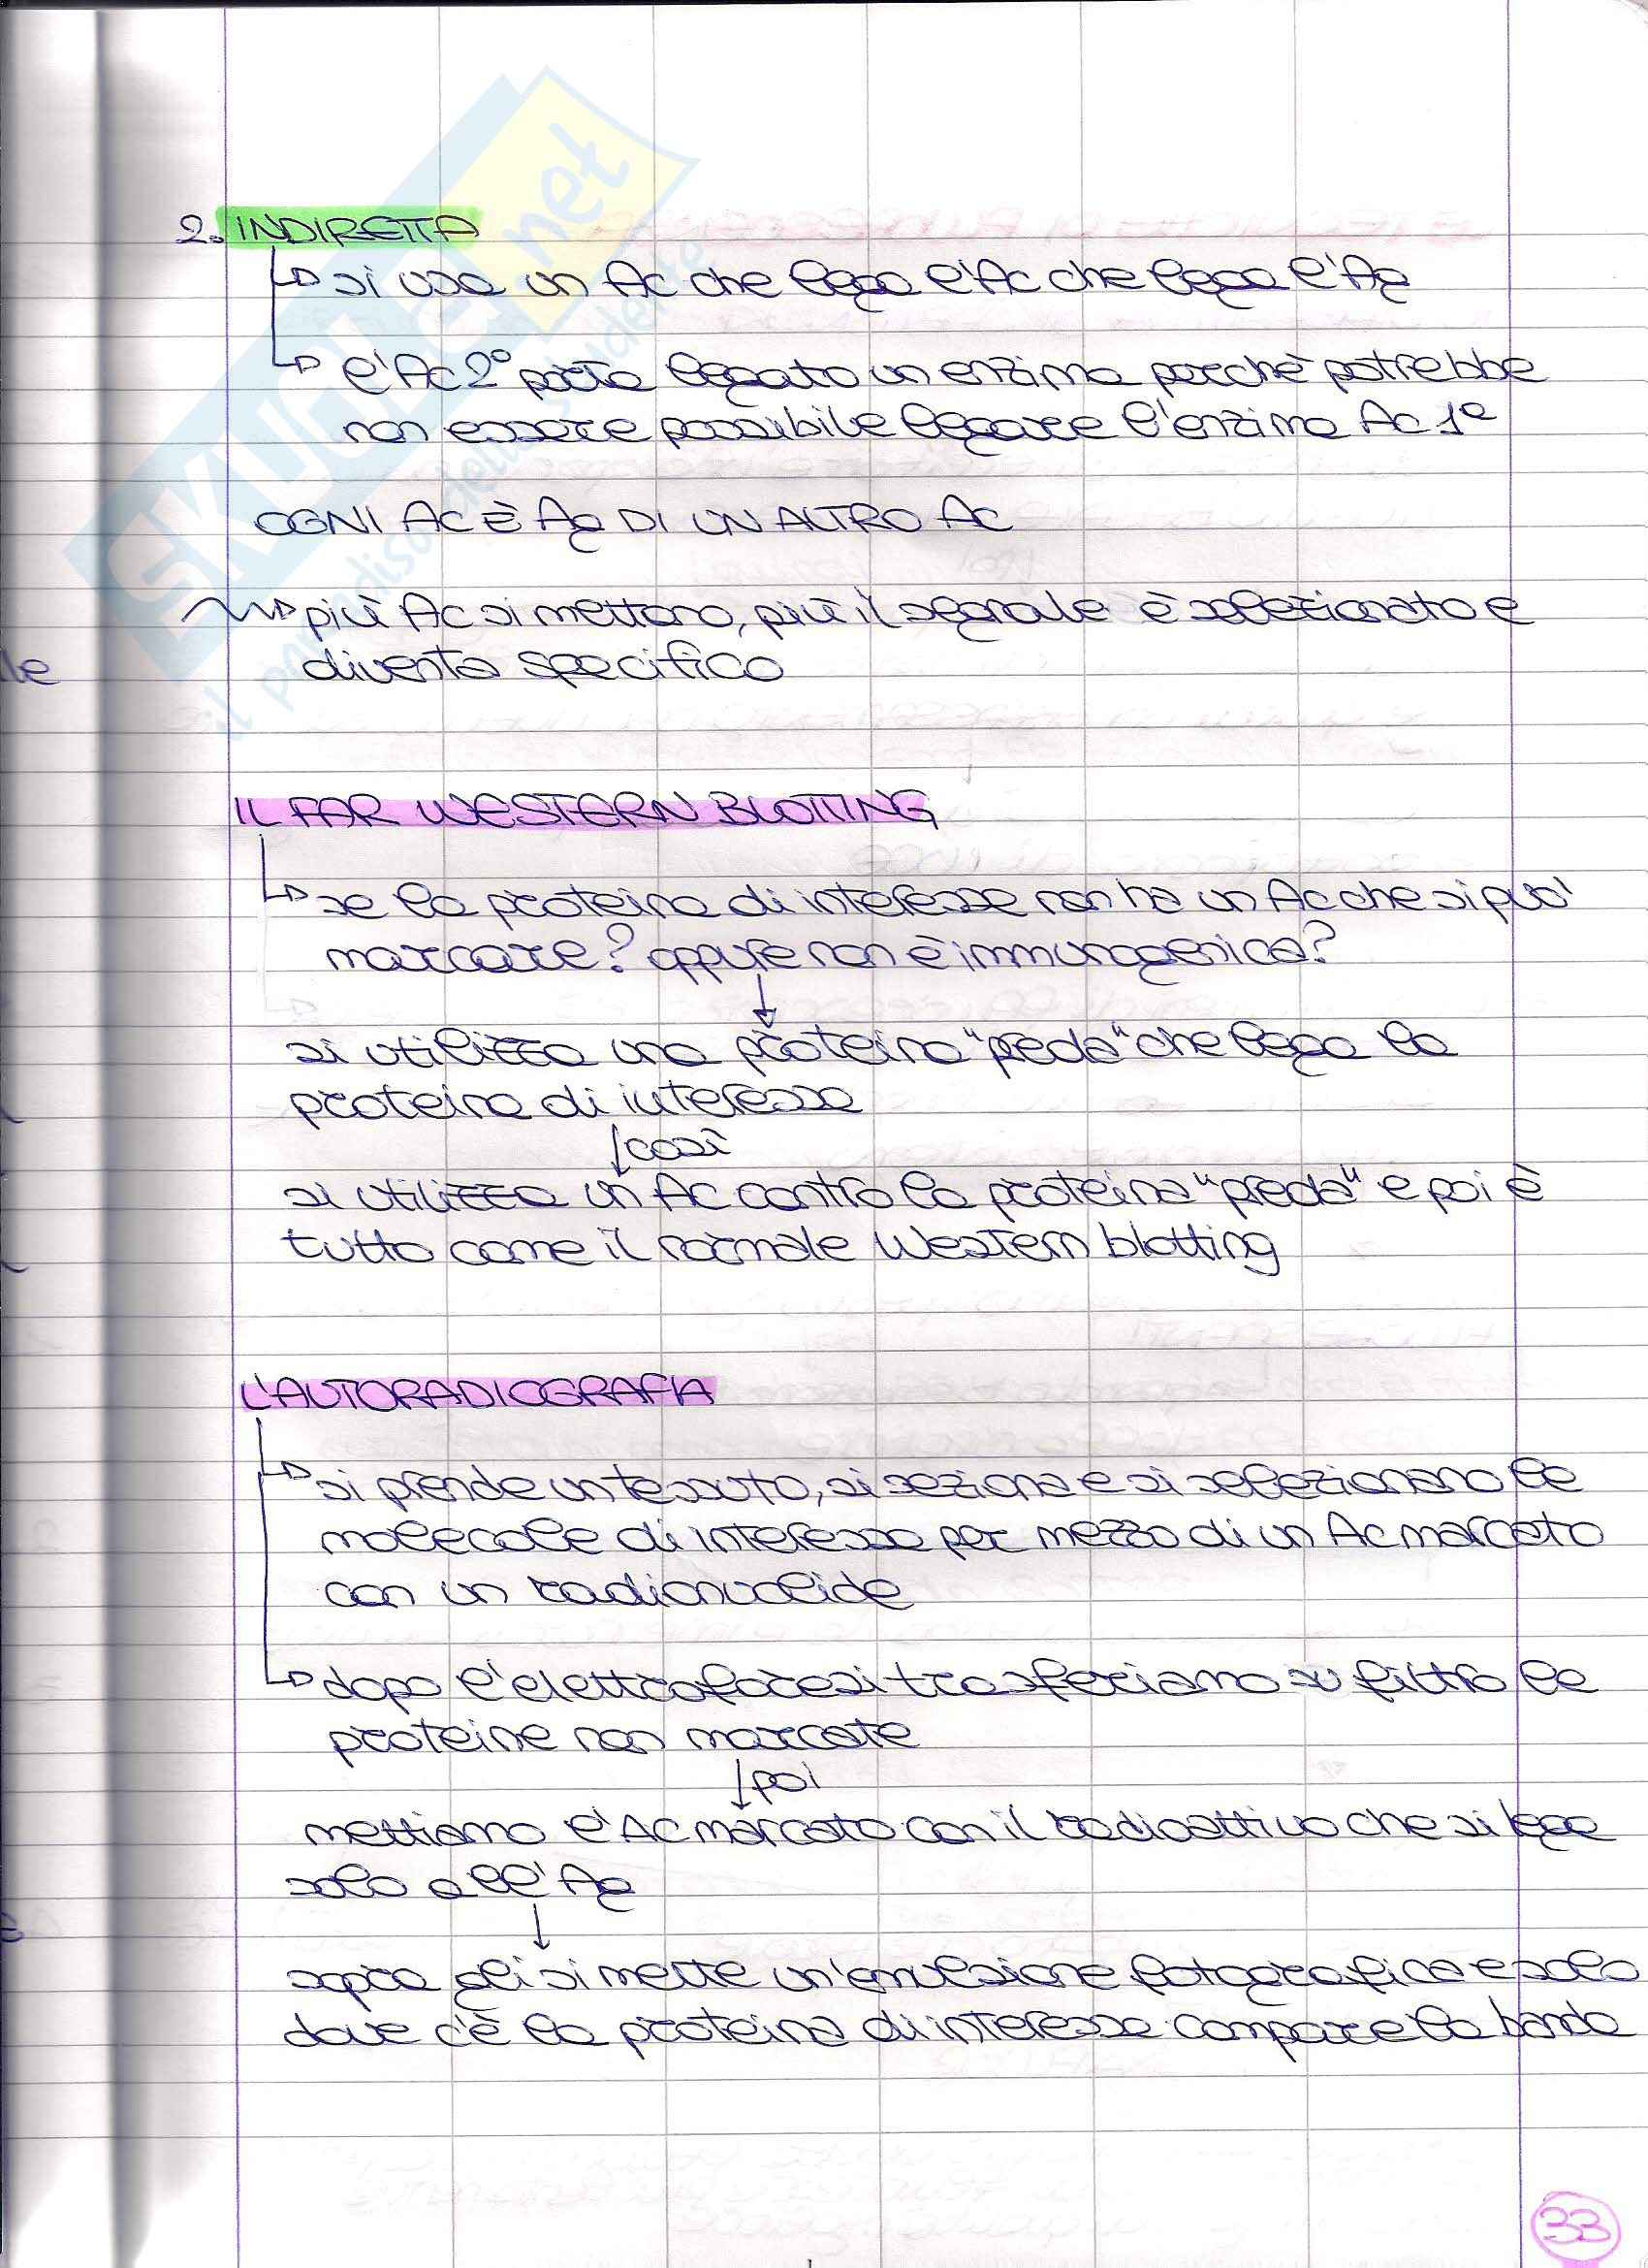 2. INDIRETTA
si usa un Ac che lega l'Ac che lega l'Ag
l'Ac 2° porta legato un enzima perchè potrebbe
non essere possibile legare l'enzima Ac 1°
OGNI AC È Ag DI UN ALTRO AC
più Ac si mettono, più il segnale è selezionato e
diventa specifico
le
IL FAR WESTERN BLOTTING
se la proteina di interesse non ha un Ac che si puo'
marcare? oppure non è immunogenica?
si utilizza una proteina "preda" che lega la
proteina di interesse
così
si utilizza un Ac contro la proteina "preda" e poi è
tutto come il normale Western blotting
L'AUTORADIOGRAFIA
si prende un tessuto, si seziona e si selezionano le
molecole di interesse per mezzo di un Ac marcato
con un radionuclide
dopo l'elettroforesi trasferiamo su filtro le
proteine non marcate
poi
mettiamo l'Ac marcato con il radioattivo che si lega
solo all'Ag
sopra gli si mette un'emulsione fotografica e solo
dove c'è la proteina di interesse compare la banda
33
SKUOLA.net
il paradiso dello studente